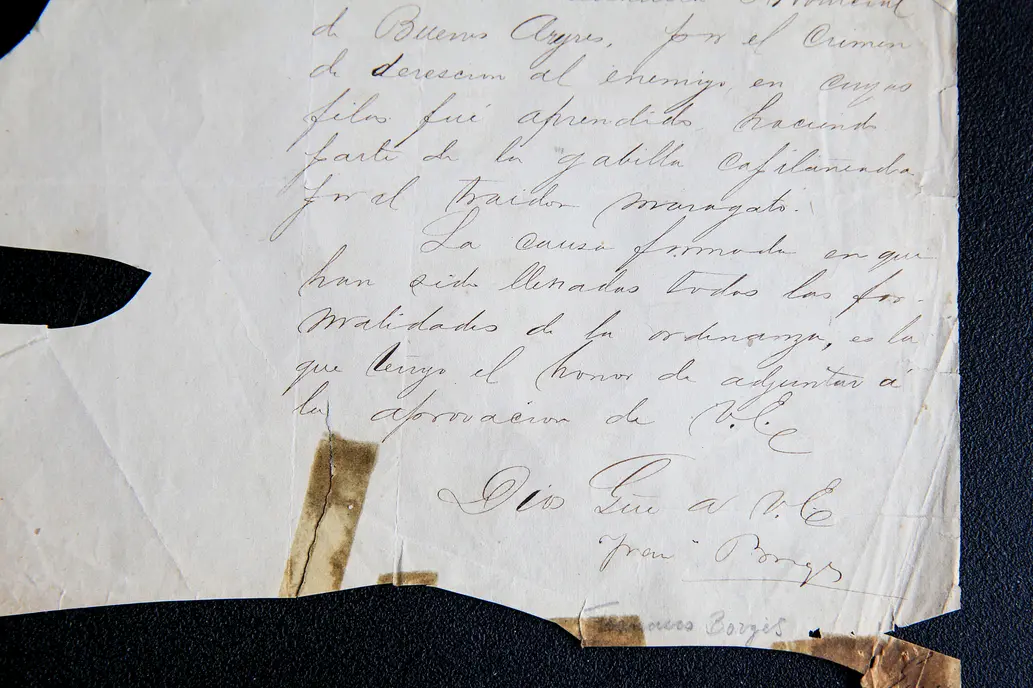 Provincial
de Buenos Ayres, por el Crimen
de derescion al enemigo, en cuyas
filas fué aprendido haciendo
parte de la gabilla capitaneada
por el traidor maragato.
La causa formada en que
han sido llenadas todas las for-
malidades de la ordenanza, es la
que tengo el honor de adjuntar á
la aprovacion de V.E.
Dios Gue a V.E
Fran Borges
Francisco Borges